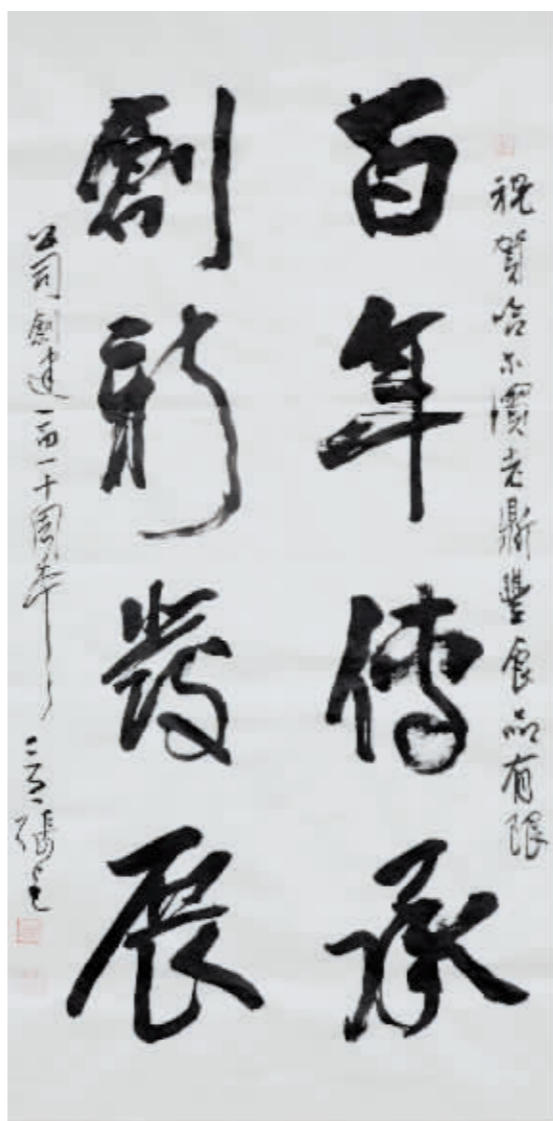 祝賀哈尔濱老鼎豐食品有限
百年傳承
創新發展
公司創建一百一十周年